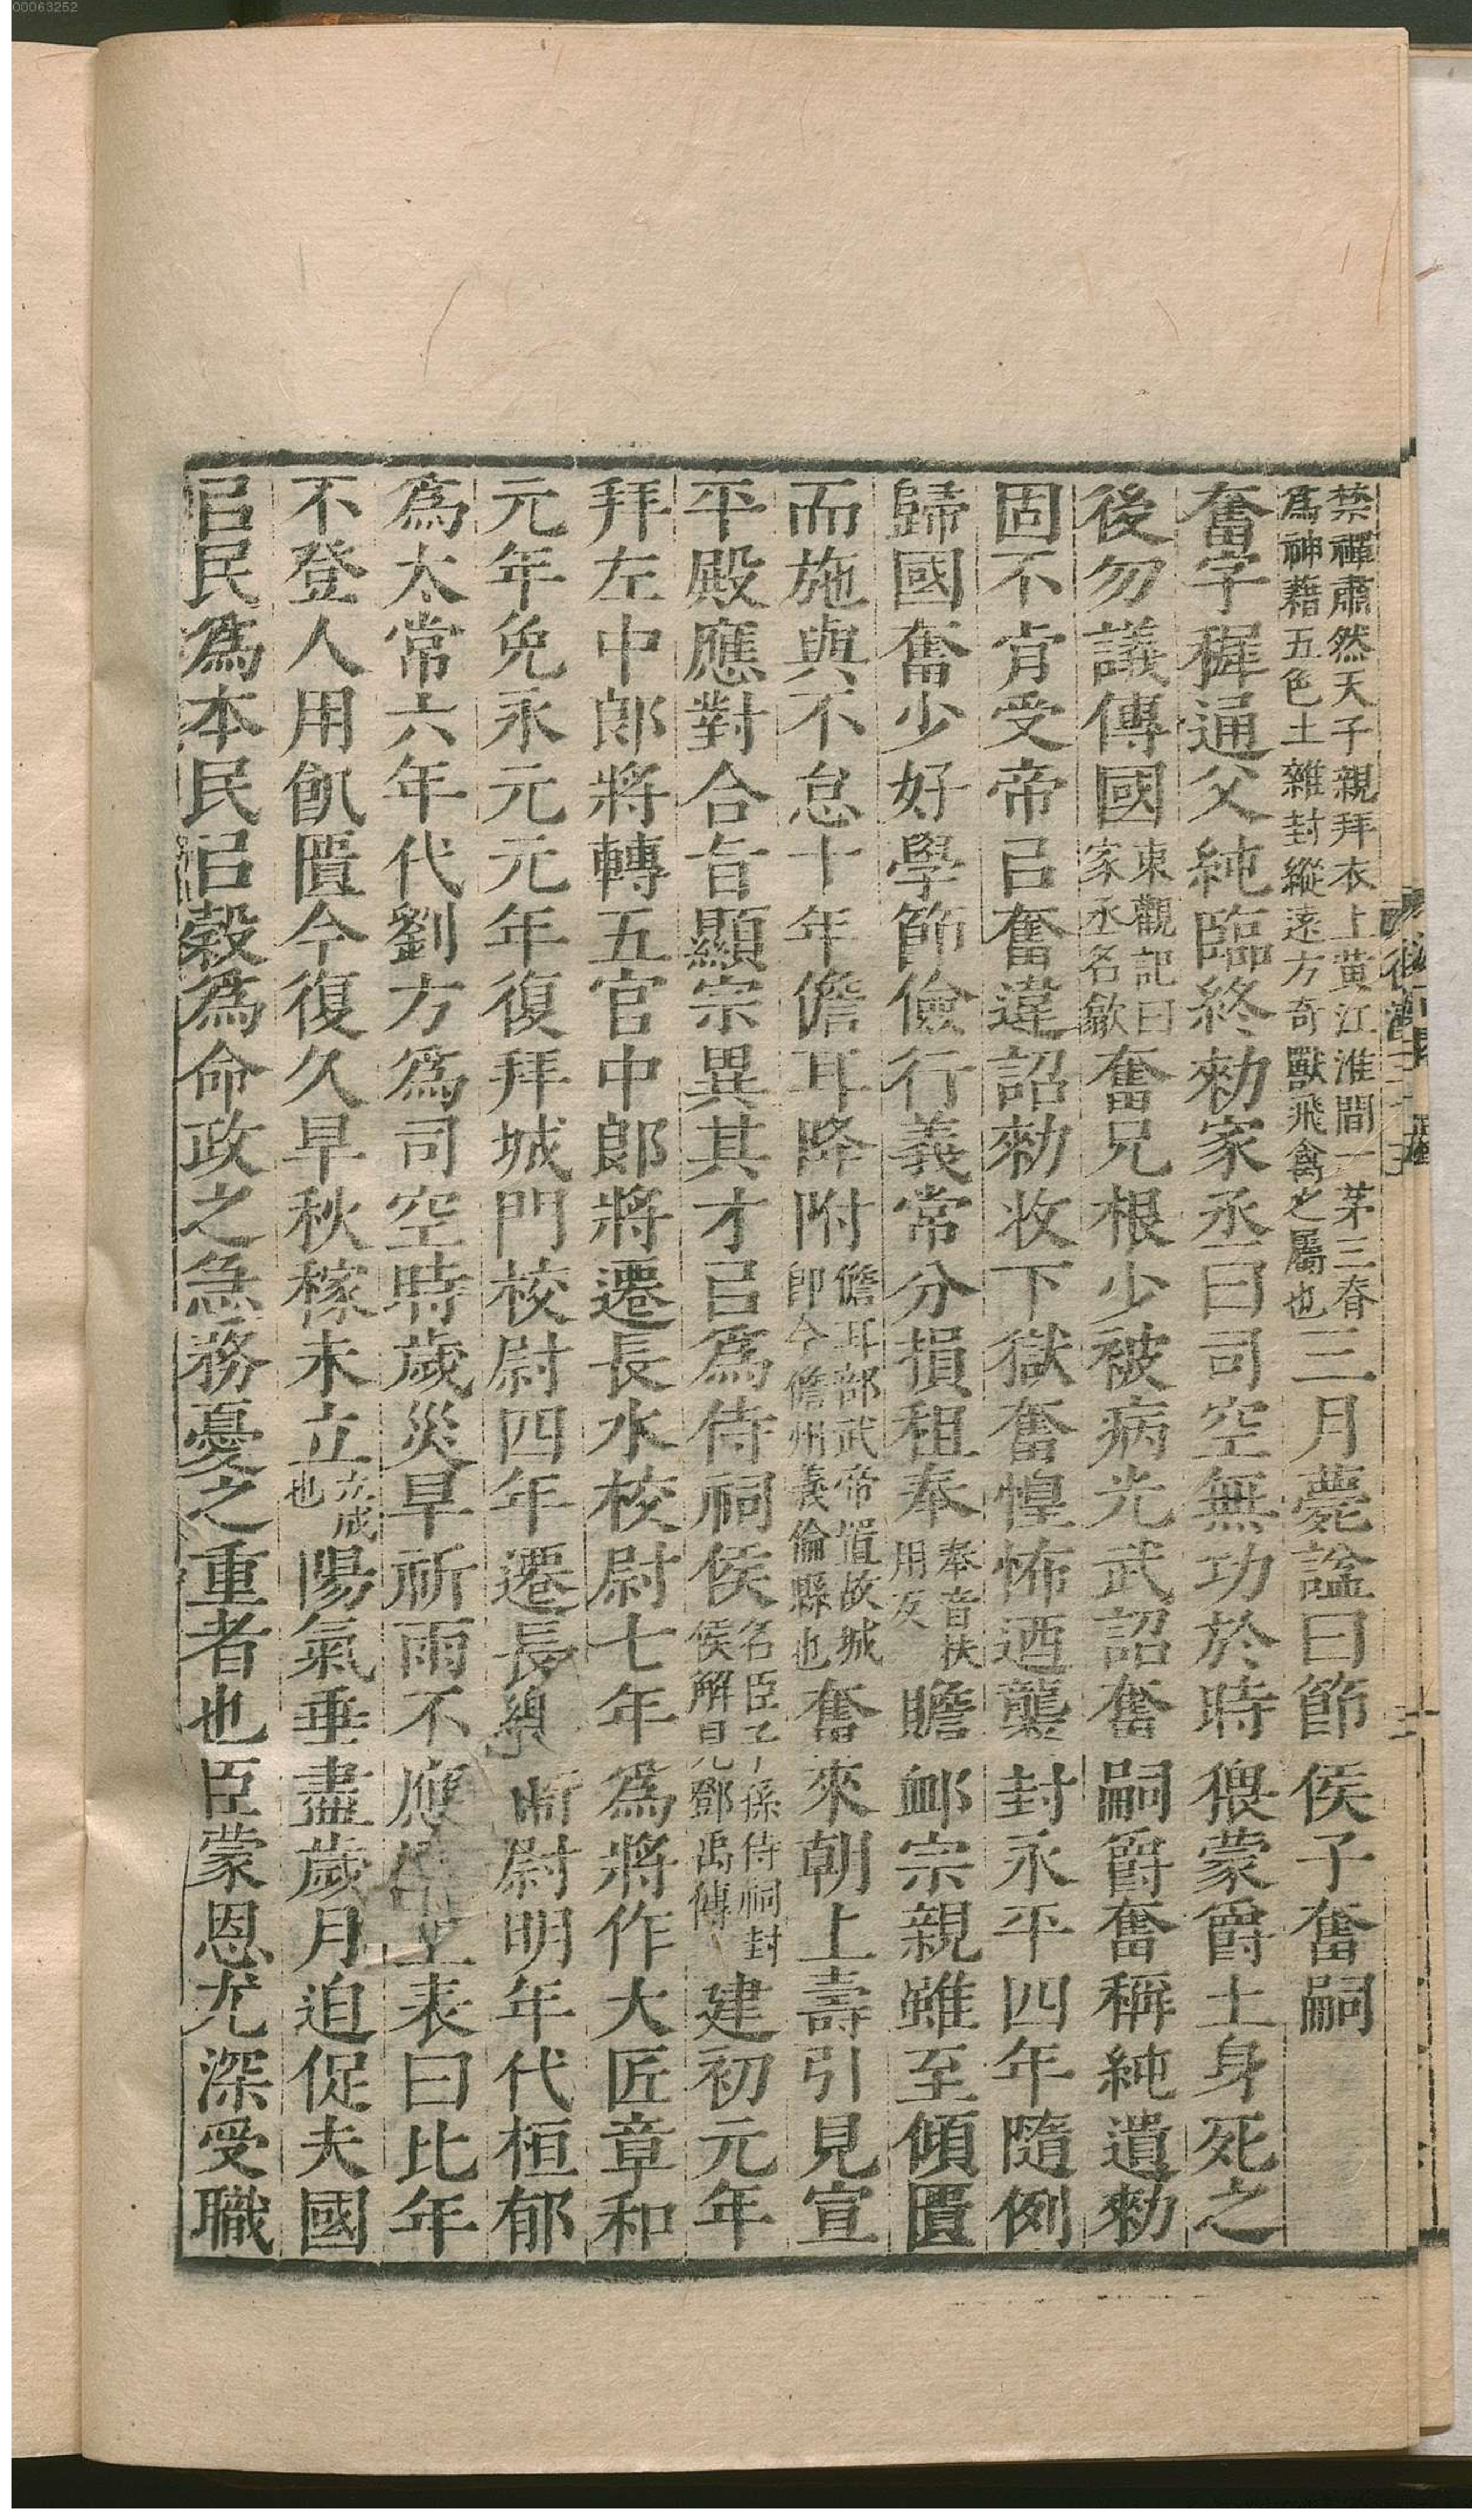 00063252
禁禪肅然天子親拜衣上黄江淮間一茅三脊
爲神藉五色土雜封縱遠方奇獸飛禽之屬也
三月薨諡曰節侯子奮嗣
奮字穉通父純臨終勑家丞曰司空無功於時猥蒙爵土身死之
後勿議傳國
東觀記曰
家丞名歙
奮兄根少被病光武詔奮嗣爵奮稱純遺勑
固不肯受帝㠯奮違詔勑收下獄奮惶怖迺襲封永平四年隨例
歸國奮少好學節儉行義常分損租奉
奉音扶
用反
贍䘏宗親雖至傾匱
而施與不怠十年儋耳降附
儋耳部武帝置故城
即今儋州義倫縣也
奮來朝上壽引見宣
平殿應對合旨顯宗異其才㠯爲侍祠侯
名臣子孫侍祠封
侯解見鄧禹傳
建初元年
拜左中郎將轉五官中郎將遷長水校尉七年爲將作大匠章和
元年免永元元年復拜城門校尉四年遷長尉明年代桓郁
爲太常六年代劉方爲司空時歲災旱祈雨不應上表曰比年
不登人用飢匱今復久旱秋稼未立
立成
也
陽氣垂盡歲月迫促夫國
㠯民爲本民㠯穀爲命政之急務憂之重者也臣蒙恩尤深受職